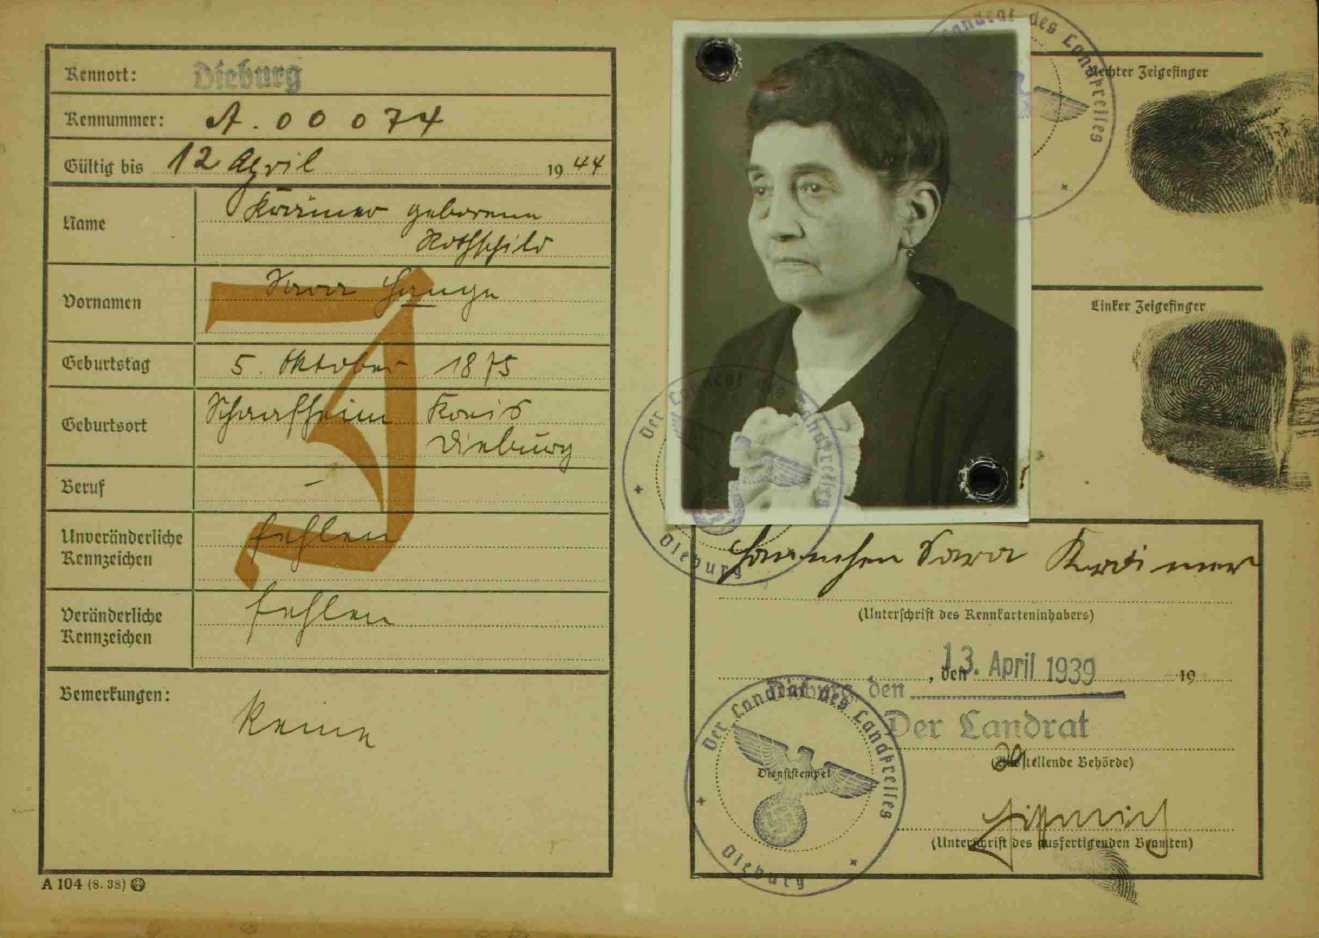 Kennort: Dieburg
Kennummer: A. 00 074
Gültig bis 12 April 1944
Name Krämer geborene
Rothschild
Vornamen Sara
Geburtstag 5. Oktober 1875
Geburtsort Schaafheim Kreis
Dieburg
Beruf -
Unveränderliche
Kennzeichen fehlen
Veränderliche
Kennzeichen fehlen
Bemerkungen: Keine
A 104 (8. 38)
J
Der Landrat des Landkreises
Rechter Zeigefinger
Linker Zeigefinger
Der Landrat des Landkreises
Dieburg
Hannchen Sara Krämer
(Unterschrift des Kennkarteninhabers)
, den 13. April 1939 19
den
Der Landrat
(Ausstellende Behörde)
Der Landrat des Landkreises
Dienststempel
Dieburg
(Unterschrift des ausfertigenden Beamten)